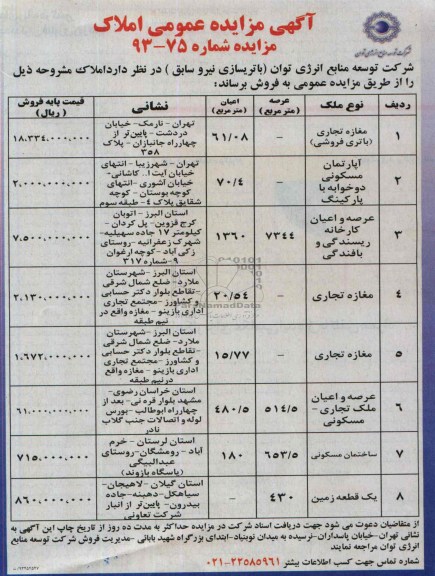 آگهی مزایده عمومی املاک
مزایده شماره ۷۵-۹۳
شرکت توسعه منابع انرژی توان
شرکت توسعه منابع انرژی توان (باتریسازی نیرو سابق ) در نظر دارداملاک مشروحه ذیل
را از طریق مزایده عمومی به فروش برساند:
ردیف نوع ملک عرصه (متر مربع) اعیان (متر مربع) نشانی قیمت پایه فروش (ریال)
۱ مغازه تجاری (باتری فروشی) - ۶۱/۰۸ تهران - نارمک- خیابان دردشت - پایین‌تر از چهارراه جانبازان - پلاک ۳۵۸ ۱۸.۳۳۴.۰۰۰.۰۰۰
۲ آپارتمان مسکونی دوخوابه با پارکینگ - ۷۰/۴ تهران - شهرزیبا - انتهای خیابان آیت‌ا.. کاشانی- خیابان آشوری -انتهای کوچه بوستان - کوچه شقایق پلاک ۴- طبقه سوم ۲.۰۰۰.۰۰۰.۰۰۰
۳ عرصه و اعیان کارخانه ریسندگی و بافندگی ۷۳۴۴ ۱۳۶۰ استان البرز - اتوبان کرج قزوین- پل کردان - کیلومتر ۱۷ جاده سهیلیه- شهرک زعفرانیه -روستای زکی آباد - کوچه ارغوان ۹-شماره ۳۱۷ ۷.۵۰۰.۰۰۰.۰۰۰
۴ مغازه تجاری - ۲۰/۵۴ استان البرز -شهرستان ملارد- ضلع شمال شرقی -تقاطع بلوار دکتر حسابی و کشاورز -مجتمع تجاری اداری بازینو - مغازه واقع در نیم طبقه ۲.۱۳۰.۰۰۰.۰۰۰
۵ مغازه تجاری - ۱۵/۷۷ استان البرز -شهرستان ملارد- ضلع شمال شرقی -تقاطع بلوار دکتر حسابی و کشاورز - مجتمع تجاری اداری بازینو - مغازه واقع درنیم طبقه ۱.۶۷۲.۰۰۰.۰۰۰
۶ عرصه و اعیان ملک تجاری - مسکونی ۵۱۴/۵ ۴۸۰/۵ استان خراسان رضوی- مشهد بلوار قره نی- بعد از چهارراه ابوطالب -بورس لوله و اتصالات جنب گلاب نادر ۶۱.۰۰۰.۰۰۰.۰۰۰
۷ ساختمان مسکونی ۶۵۳/۵ ۱۸۰ استان لرستان - خرم آباد - رومشگان-روستای عبدالبیگی (پاسگاه بازوند) ۷۱۵.۰۰۰.۰۰۰
۸ یک قطعه زمین ۴۳۰ - استان گیلان -لاهیجان- سیاهکل-دهبنه-جاده بیدرون- پایین‌تر از انبار شرکت تعاونی ۸۶۰.۰۰۰.۰۰۰
از متقاضیان دعوت می شود جهت دریافت اسناد شرکت در مزایده حداکثر به مدت ده روز از تاریخ چاپ این آگهی به
نشانی تهران-خیابان پاسداران -نرسیده به میدان نوبنیاد-ابتدای بزرگراه شهید بابائی -مدیریت فروش شرکت توسعه منابع
انرژی توان مراجعه نمایند
شماره تماس جهت کسب اطلاعات بیشتر ۲۲۵۸۵۹۶۱-۰۲۱